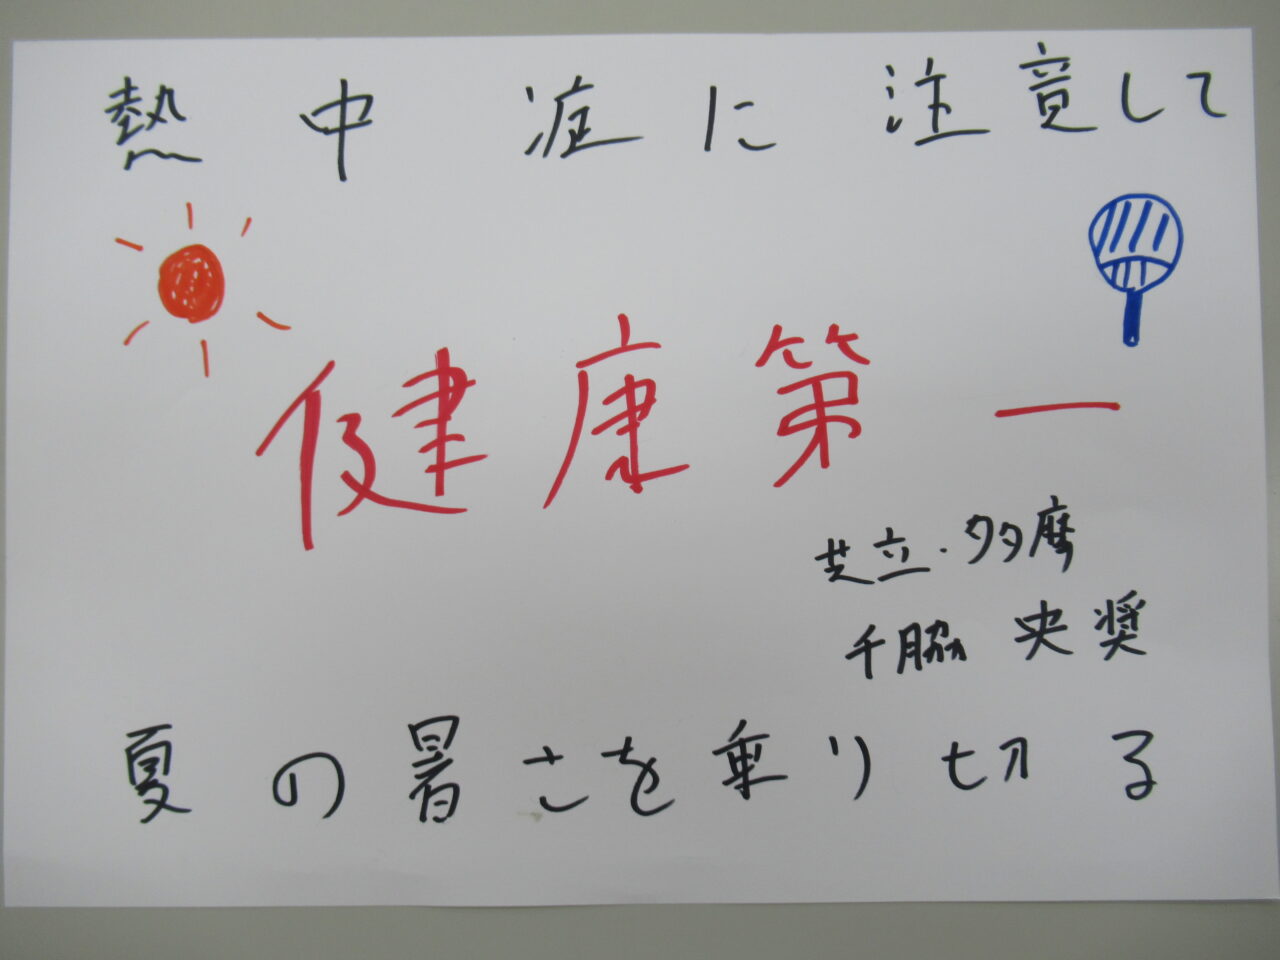 熱中症に注意して
健康第一
芝立・多摩
千脇 央奨
夏の暑さを乗り切る